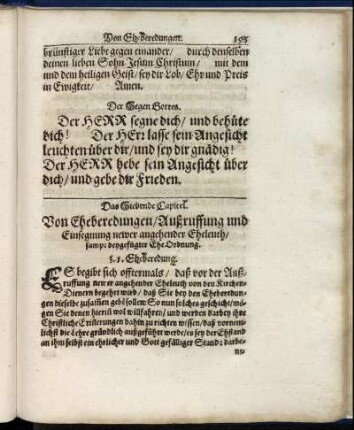 Von Eheberedungen. 155
brünstiger Liebe gegen einander/ durch denselben
deinen lieben Sohn Jesum Christum/ mit dem
und dem heiligen Geist/ sey dir Lob/ Ehr und Preis
in Ewigkeit/ Amen.
Der Segen Gottes.
Der HERR segne dich/ und behüte
dich! Der HErr lasse sein Angesicht
leuchten über dir/ und sey dir gnädig!
Der HERR hebe sein Angesicht über
dich/ und gebe dir Frieden.
Das Siebende Capitel.
Von Eheberedungen/ Außruffung und
Einsegnung newer angehender Eheleuth/
sampt beygefügter Ehe-Ordnung.
§. 1. Eheberedung.
ES begibt sich offtermals/ daß vor der Auß-
ruffung newer angehender Eheleuth von den Kirchen-
Dienern begehrt wird/ daß Sie bey den Eheberedun-
gen dieselbe zusammen geben sollen: So nun solches geschicht/ mö-
gen Sie denen hierin wol willfahren/ und werden darbey ihre
Christliche Erinerungen dahin zu richten wissen/ daß vornem-
lichst die Lehre gründlich außgeführt werde/ es sey der Ehstand
an ihm selbst ein ehrlicher und Gott gefälliger Stand: darbe-